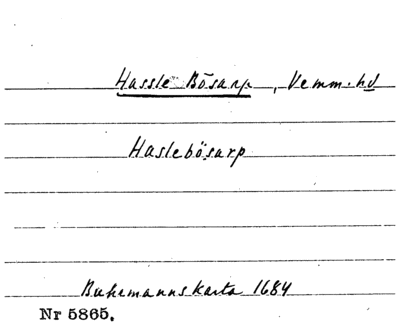 Hassle Bösarp, Vemm. hd
Haslebösarp
Buhrmanns karta 1684
Nr 5865.